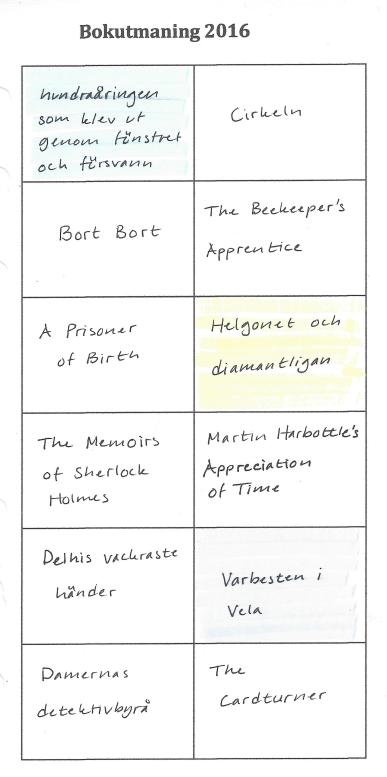 Bokutmaning 2016
hundraåringen
som klev ut
genom fönstret
och försvann
Cirkeln
Bort Bort
The Beekeeper's
Apprentice
A Prisoner
of Birth
Helgonet och
diamantligan
The Memoirs
of Sherlock
Holmes
Martin Harbottle's
Appreciation
of Time
Delhis vackraste
händer
Varbesten i
Vela
Damernas
detektivbyrå
The
Cardturner